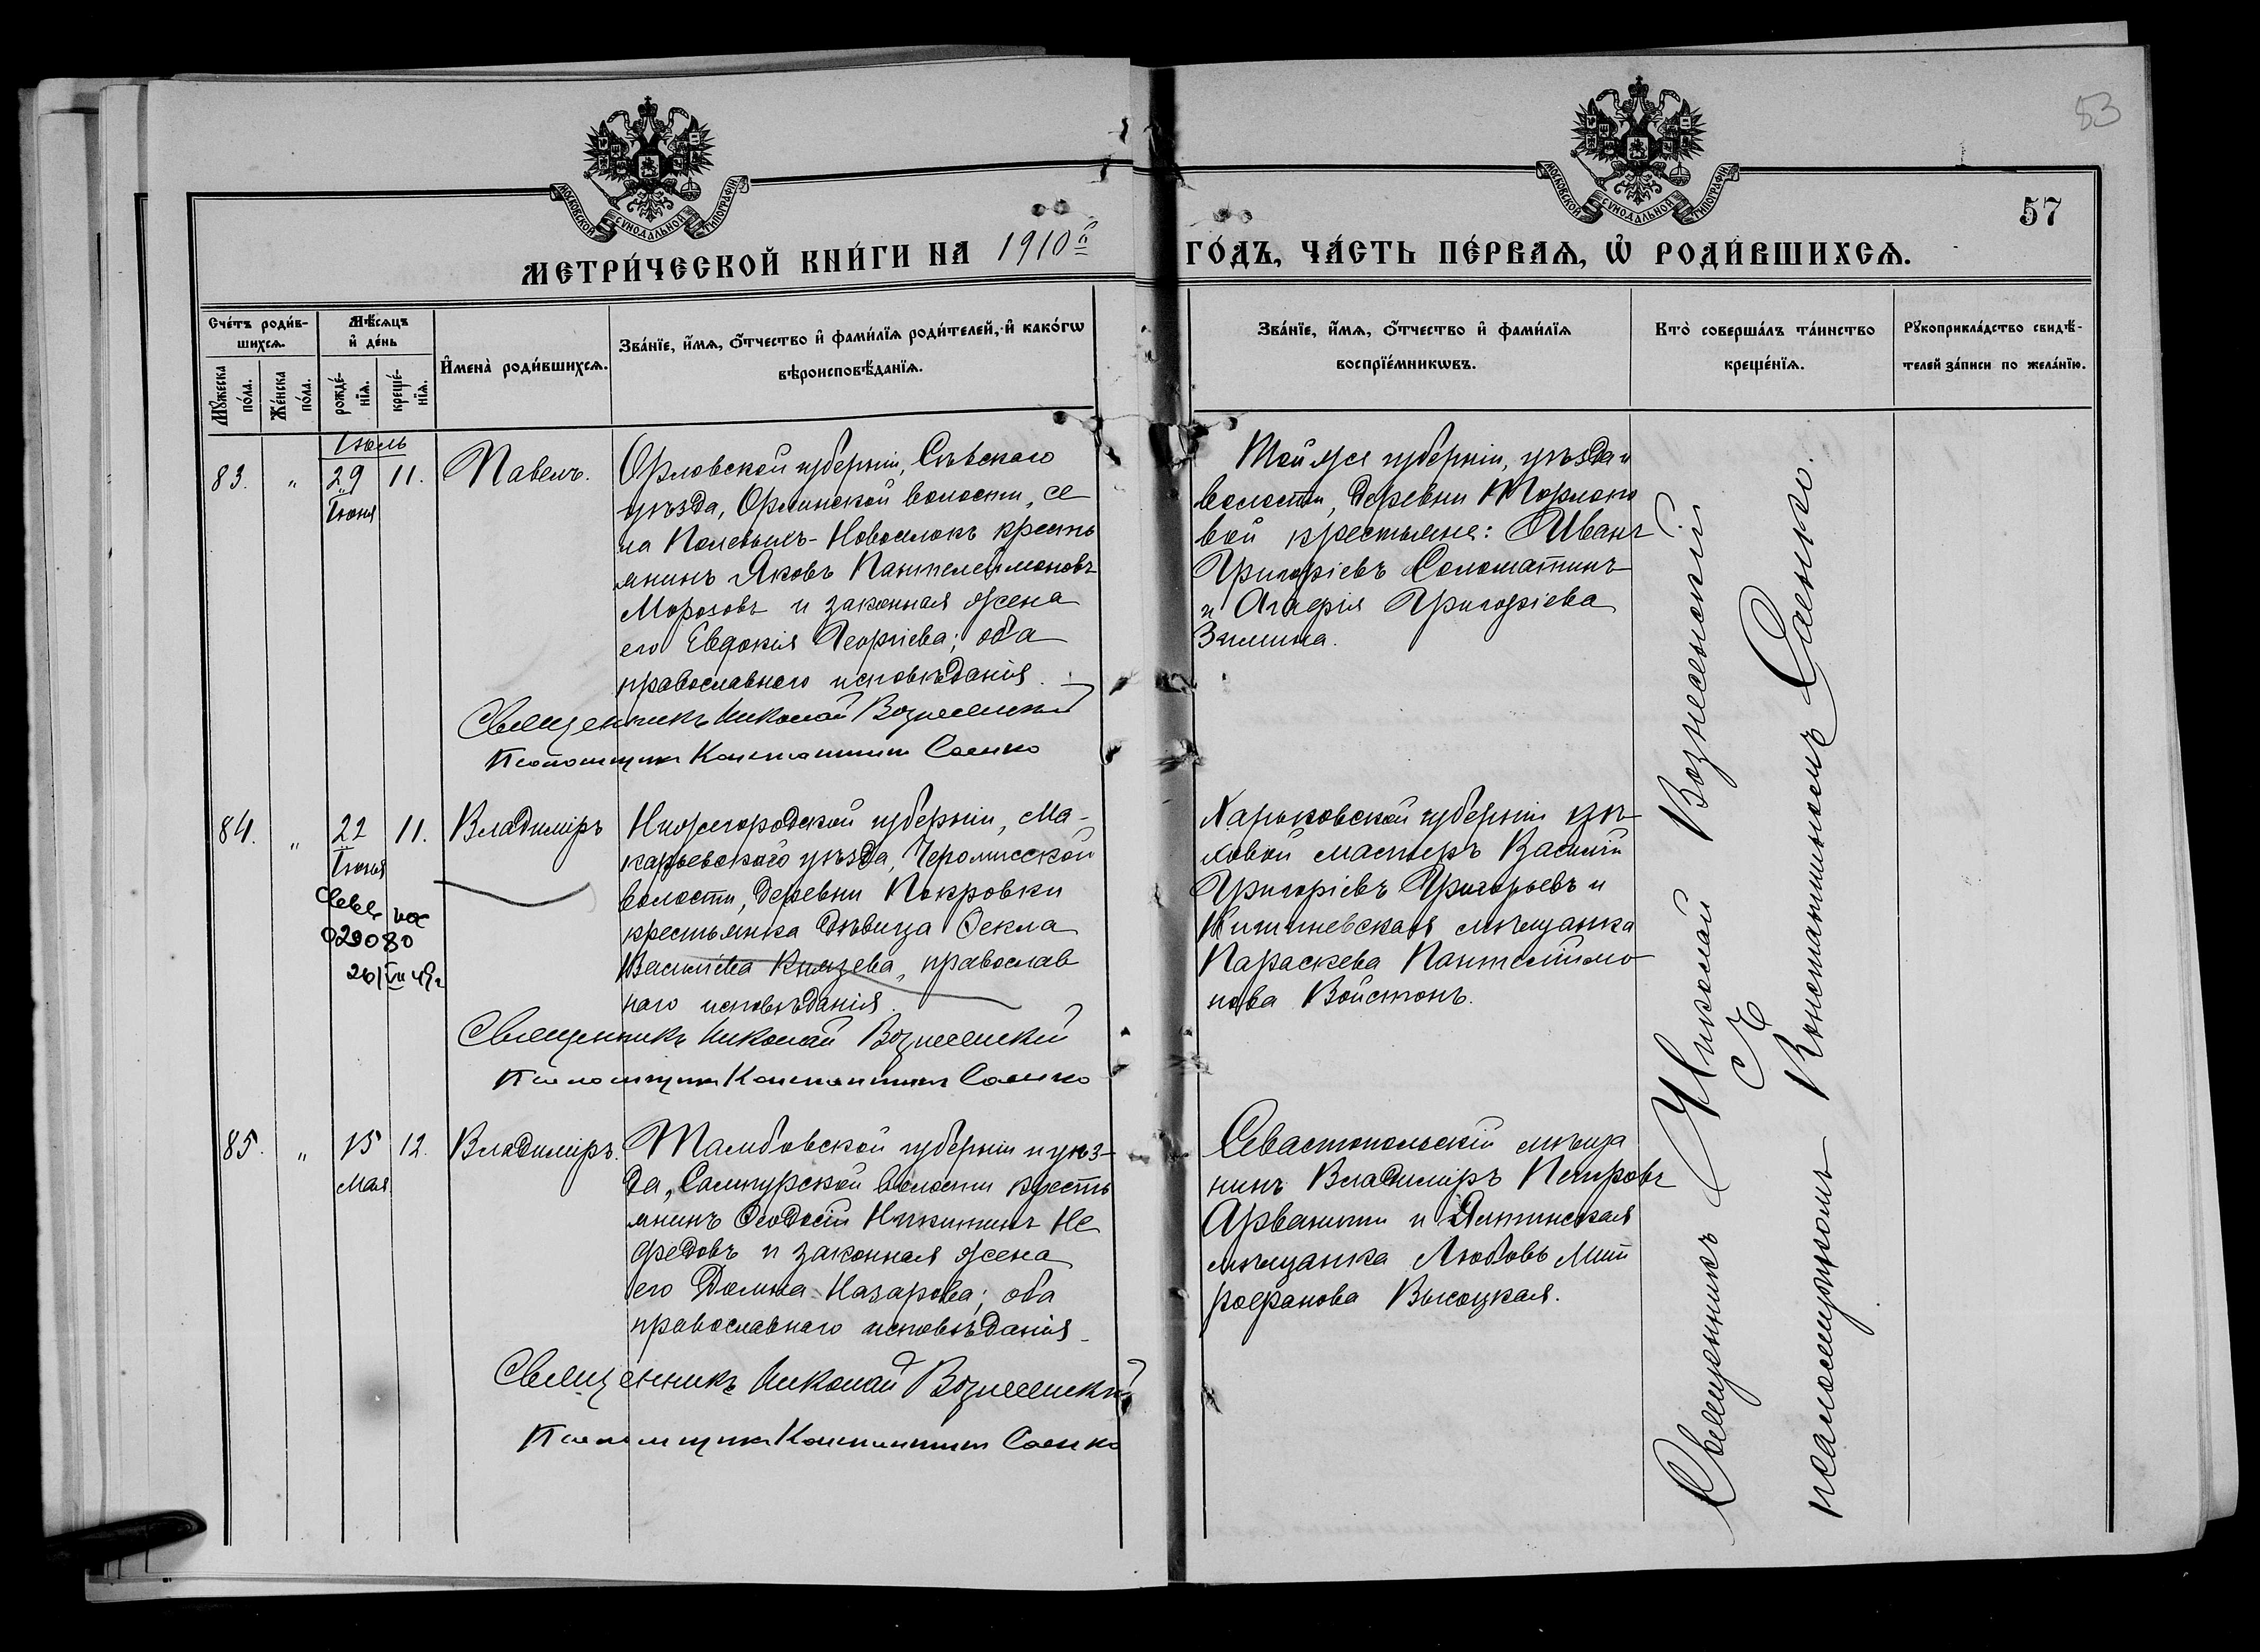 53
МОСКОВСКОЙ СѴНОДАЛЬНОЙ ТИПОГРАФІИ
МОСКОВСКОЙ СѴНОДАЛЬНОЙ ТИПОГРАФІИ
57
МЕТРИ́ЧЕСКОЙ КНИ́ГИ НА 1910й ГО́ДЪ, ЧА́СТЬ ПЕ́РВАѦ, Ѡ҆ РОДИ́ВШИХСѦ.
Сче́тъ роди́в-
шихсѧ.
Му́жеска по́ла.
Же́нска по́ла.
Мѣ́сѧцъ
и҆ де́нь
рожде́-
нїѧ.
креще́-
нїѧ.
И҆мена̀ роди́вшихсѧ.
Зва́нїе, и҆́мѧ, ѻ҆́тчество и҆ фами́лїѧ роди́телей, и҆ како́гѡ
вѣроисповѣ́данїѧ.
Зва́нїе, и҆́мѧ, ѻ҆́тчество и҆ фами́лїѧ
воспрїе́мникѡвъ.
Кто̀ соверша́лъ та́инство
креще́нїѧ.
Рꙋкоприкла́дство свидѣ́-
телей за́писи по жела́нїю.
Іюль
83. " 29 11. Павелъ.
Іюня
Орловской губерніи, Сѣвскаго
уѣзда, Орлинской волости, се
ла Новоселокъ кресть
янинъ Яковъ Пантелеймоновъ
Морозовъ и законная жена
его Евдокія Георгіева; оба
православнаго исповѣданія.
Священникъ Николай Вознесенскій
Псаломщикъ Константинъ Саенко
Той же губерніи, уѣзда и
волости, деревни
вой крестьяне: Иванъ
Григоріевъ Соломатинъ
и Агафія Григоріева
Зимина.
84. " 22 11. Владиміръ
Іюня
029080
26/VII 49г
Нижегородской губерніи, Ма-
карьевскаго уѣзда, Черемисской
волости, деревни Покровки
крестьянка дѣвица Ѳекла
Васильева Князева, православ
наго исповѣданія.
Священникъ Николай Вознесенскій
Псаломщикъ Константинъ Саенко
Харьковской губерніи цѣ-
ховой мастеръ Василій
Григоріевъ Григорьевъ и
Кишиневская мѣщанка
Параскева Пантелеймо
нова Войстонъ.
85. " 15 12. Владиміръ.
Мая
Тамбовской губерніи и уѣз-
да, волости кресть
янинъ Ѳеодосій Никитинъ Не
федовъ и законная жена
его Домна Назарова; оба
православнаго исповѣданія.
Священникъ Николай Вознесенскій
Псаломщикъ Константинъ Саенко
Севастопольскій мѣща
нинъ Владиміръ Петровъ
Арванити и Ялтинская
мѣщанка Любовь Мит
рофанова Высоцкая.
Священникъ Николай Вознесенскій
съ
псаломщикомъ Константиномъ Саенко.